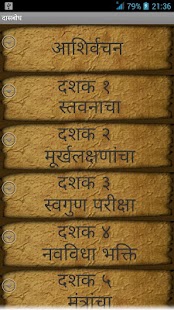 79% 21:36
दासबोध
आशिर्वचन
दशक १
स्तवनाचा
दशक २
मूर्खलक्षणांचा
दशक ३
स्वगुण परीक्षा
दशक ४
नवविधा भक्ति
दशक ५
मंत्रांचा